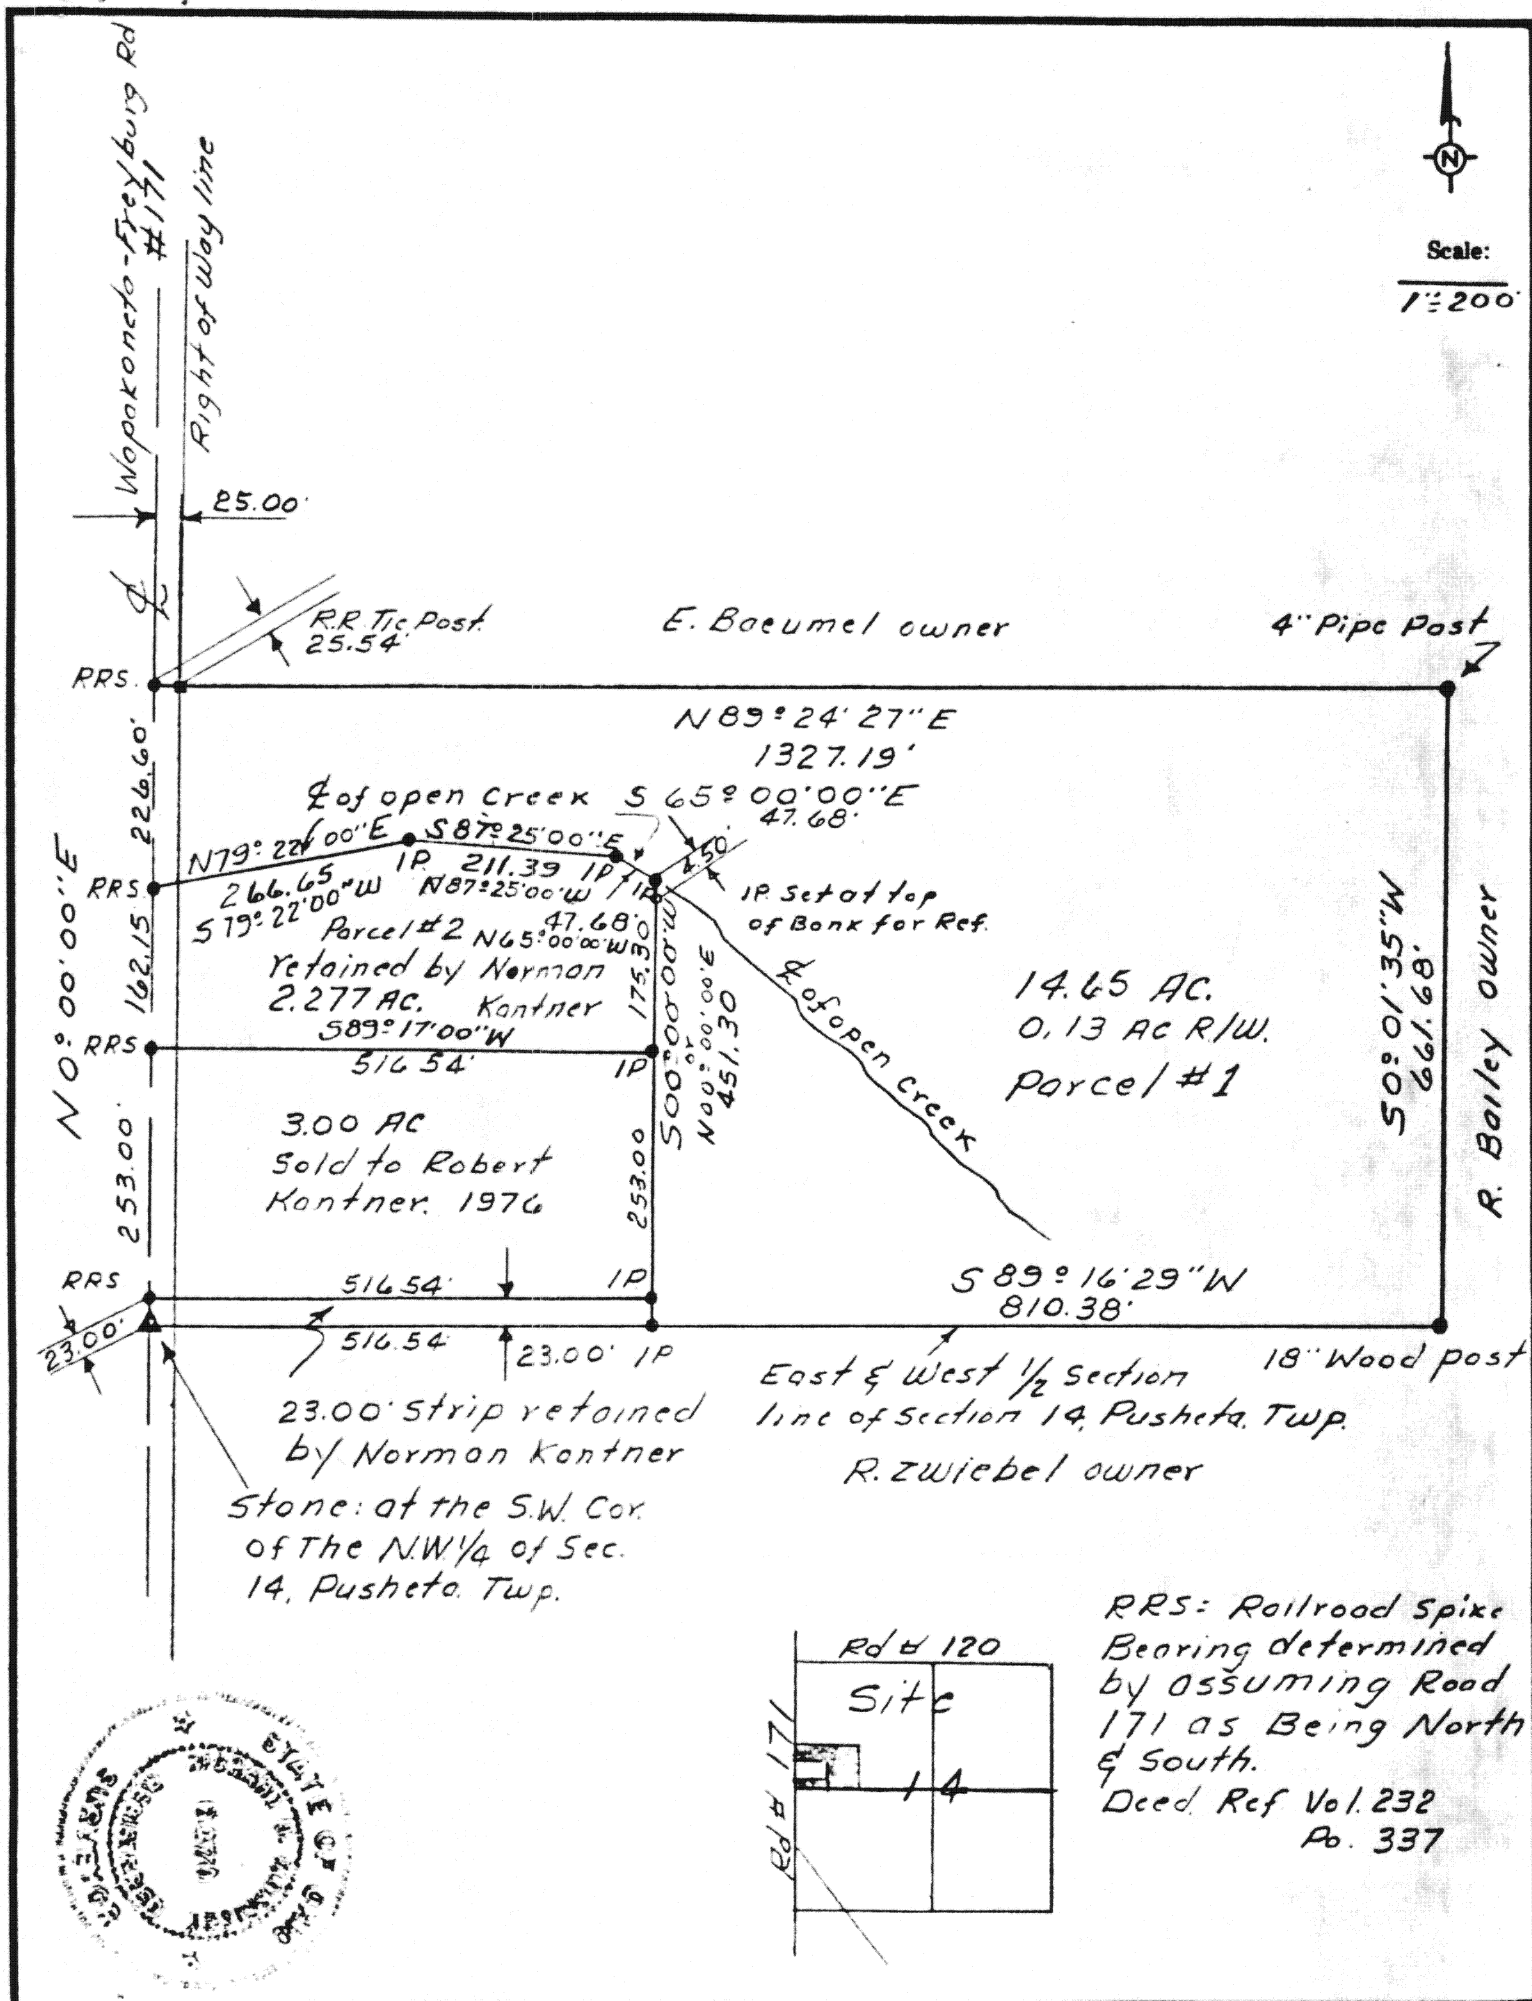 Wapakoneta-Freyburg Rd
#171
Right of Way line
N
Scale:
1"=200'
25.00'
℄
R.R. Tie Post.
25.54'
E. Baeumel owner
4" Pipe Post
RRS.
N 89° 24' 27" E
1327.19'
226.60'
℄ of open creek
S 65° 00' 00" E
47.68'
N79° 22' 00" E
S 87° 25' 00" E
4.50'
RRS
266.65
S 79° 22' 00" W
IP.
211.39
N87° 25' 00" W
IP
IP
IP. Set at top
of Bank for Ref.
N 0° 00' 00" E
162.15
Parcel #2
47.68'
N65° 00' 00" W
retained by Norman
2.277 AC. Kantner
175.30
S00° 00' 00" W
or
N00° 00' 00" E
451.30
℄ of open creek
14.65 AC.
0.13 Ac R/W.
Parcel #1
S 0° 01' 35" W
661.68'
R. Bailey owner
RRS
S89° 17' 00" W
516.54'
IP
253.00'
3.00 AC
Sold to Robert
Kantner. 1976
253.00
RRS
516.54'
IP
S 89° 16' 29" W
810.38'
23.00'
516.54
23.00'
IP
18" Wood post
23.00' Strip retained
by Norman Kantner
East & West 1/2 Section
line of Section 14, Pusheta. Twp.
R. Zwiebel owner
Stone: at the S.W. Cor.
of The N.W 1/4 of Sec.
14, Pusheta. Twp.
Rd # 120
Site
Rd # 171
14
RRS: Railroad Spike
Bearing determined
by assuming Road
171 as Being North
& South.
Deed. Ref Vol. 232
Pa. 337
STATE OF OHIO